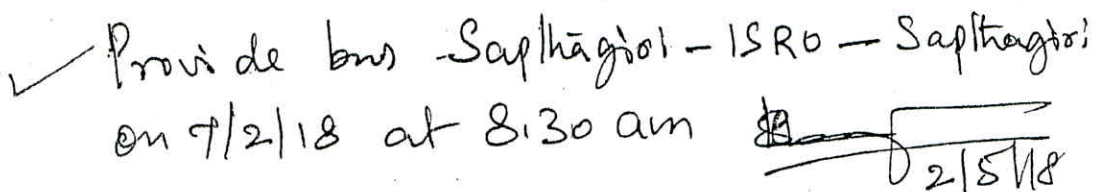 ✓ Provide bus Sapthagiri - ISRO - Sapthagiri
on 7/2/18 at 8.30 am
2/5/18